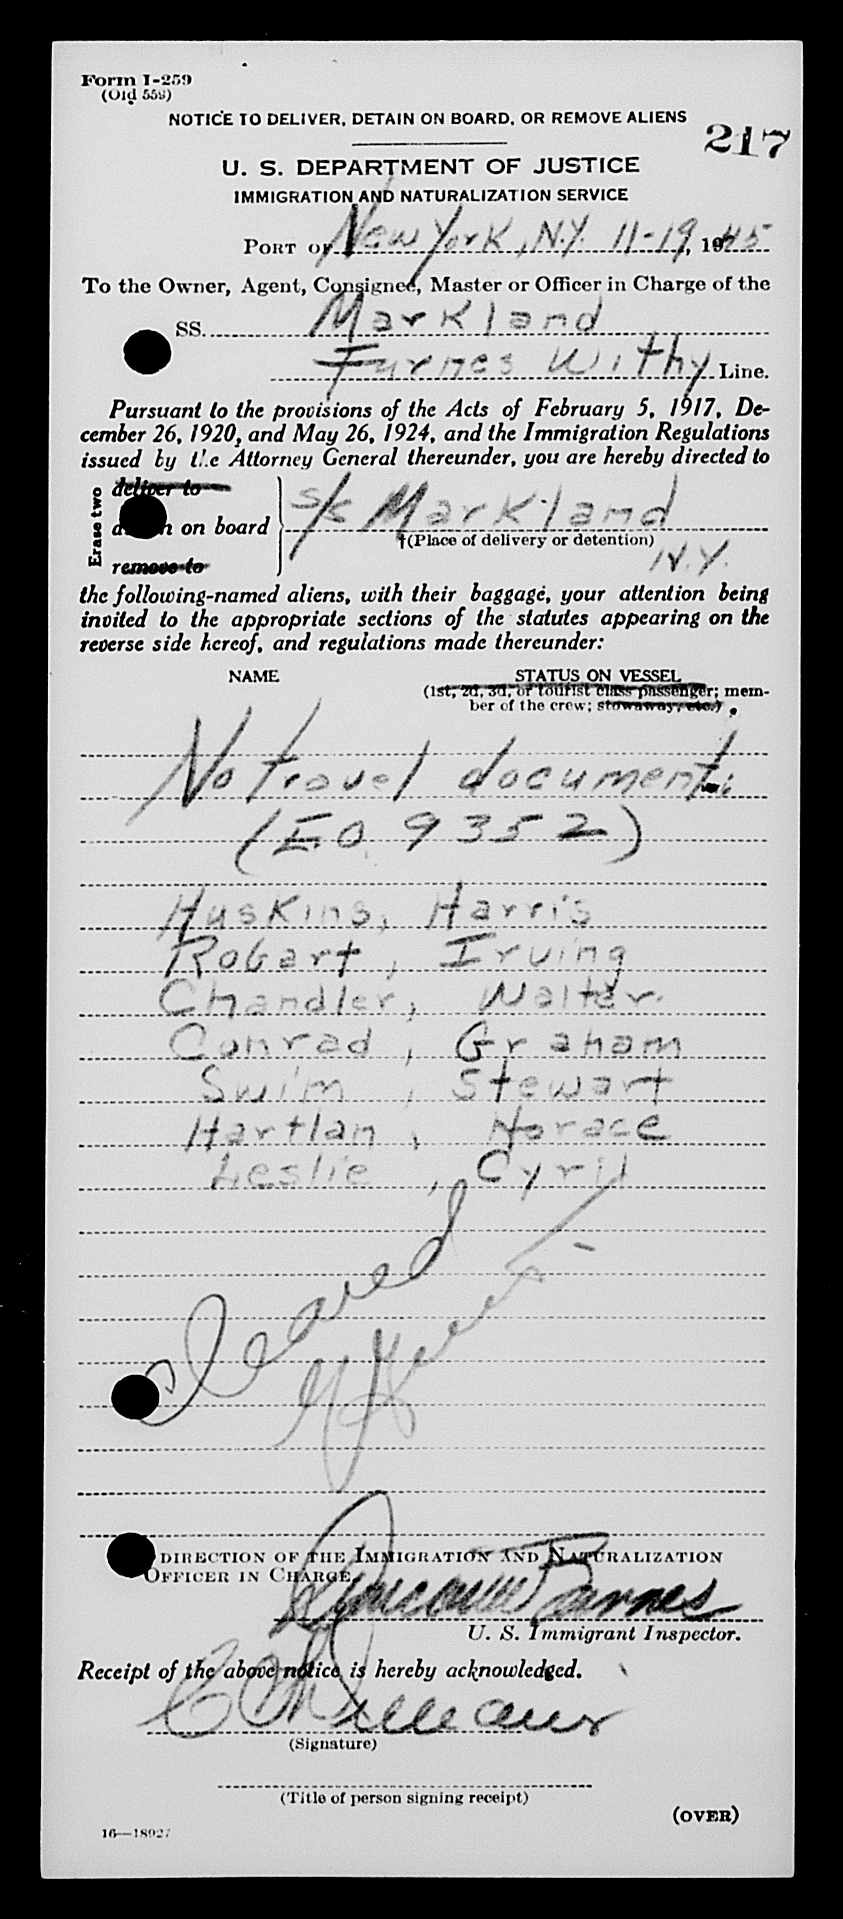 Form I-259
(Old 559)
NOTICE TO DELIVER, DETAIN ON BOARD, OR REMOVE ALIENS
217
U. S. DEPARTMENT OF JUSTICE
IMMIGRATION AND NATURALIZATION SERVICE
PORT OF New York, N.Y. 11-19, 1945
To the Owner, Agent, Consignee, Master or Officer in Charge of the
SS. Markland
Furnes Withy Line.
Pursuant to the provisions of the Acts of February 5, 1917, De-
cember 26, 1920, and May 26, 1924, and the Immigration Regulations
issued by the Attorney General thereunder, you are hereby directed to
Erase two
deliver to
on board
remove to
s/s Markland
†(Place of delivery or detention)
N.Y.
the following-named aliens, with their baggage, your attention being
invited to the appropriate sections of the statutes appearing on the
reverse side hereof, and regulations made thereunder:
NAME STATUS ON VESSEL
(1st, 2d, 3d, or tourist class passenger; mem-
ber of the crew; stowaway, etc.)
No travel document
(EO 9352)
Huskins, Harris
Robart, Irving
Chandler, Walter
Conrad, Graham
Swim, Stewart
Hartlan, Horace
Leslie, Cyril
Cleared
DIRECTION OF THE IMMIGRATION AND NATURALIZATION
OFFICER IN CHARGE,
Barnes
U. S. Immigrant Inspector.
Receipt of the above notice is hereby acknowledged.
(Signature)
(Title of person signing receipt)
(OVER)
16—18927